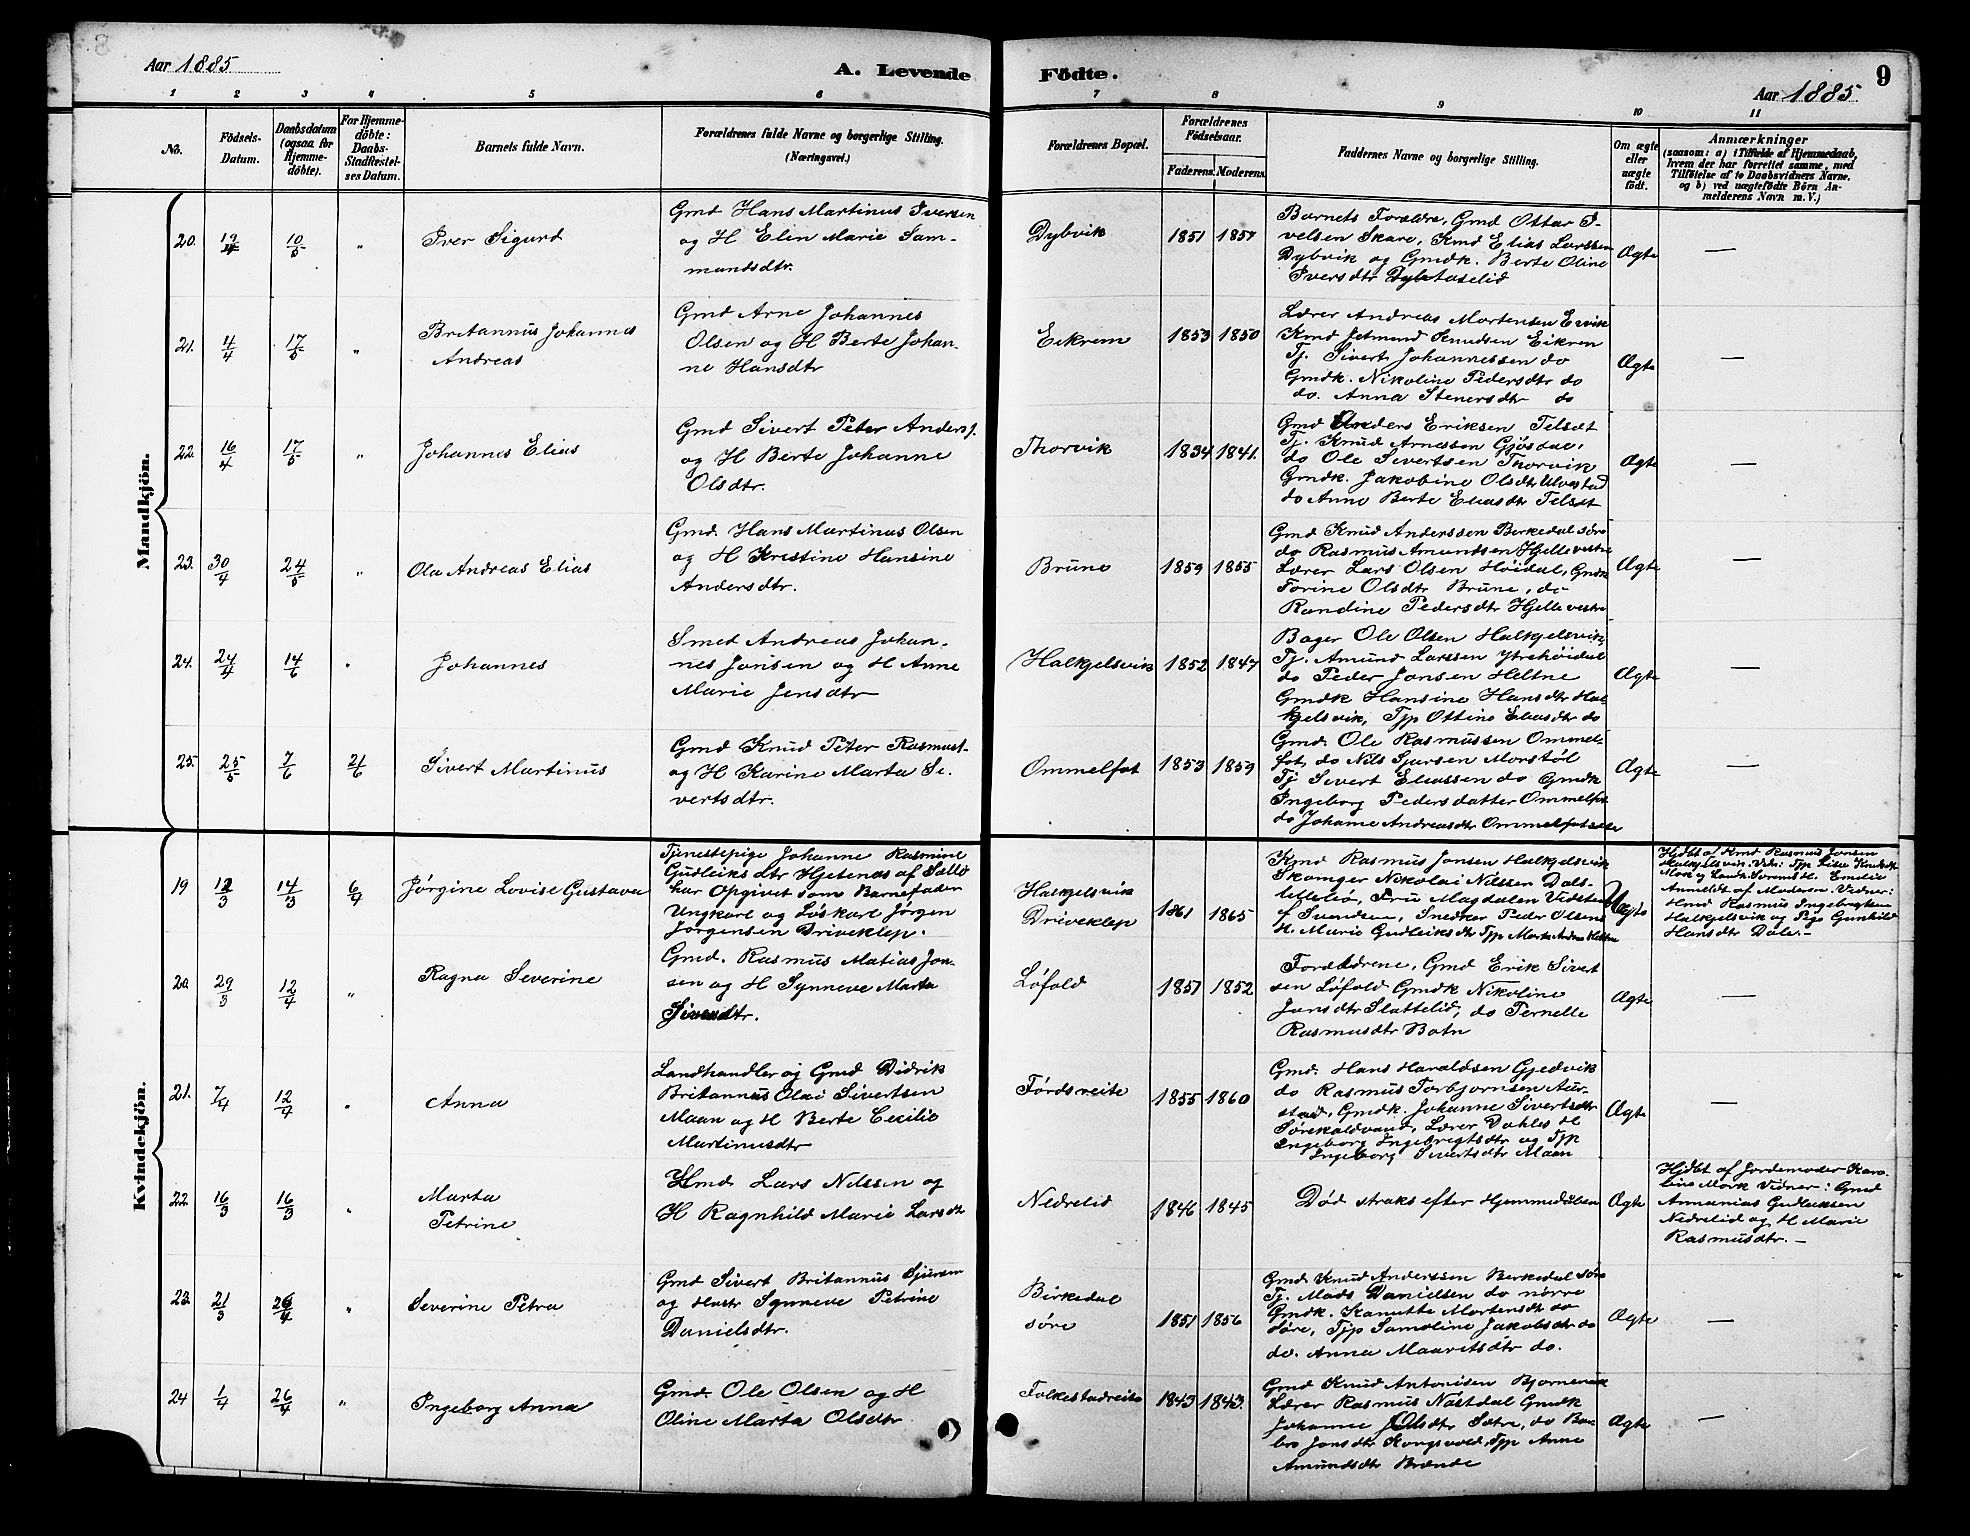 Aar 1885
A. Levende
Födte.
9
Aar 1885
1 2 3 4 5 6 7 8 9 10 11
No.
Födsels-
Datum.
Daabsdatum
(ogsaa for
Hjemme-
döbte).
For Hjemme-
döbte:
Daabs-
Stadfæstel-
ses Datum.
Barnets fulde Navn.
Forældrenes fulde Navne og borgerlige Stilling.
(Næringsvei.)
Forældrenes Bopæl.
Forældrenes
Födselsaar.
Faderens. Moderens.
Faddernes Navne og borgerlige Stilling.
Om ægte
eller
uægte
födt.
Anmærkninger
(saasom: a) i Tilfælde af Hjemmedaab,
hvem der har forrettet samme, med
Tilföielse af to Daabsvidners Navne,
og b) ved uægtefödte Börn An-
melderens Navn m. V.)
Mandkjön.
20. 19/4 10/5 "
Iver Sigurd
Gmd Hans Martinus Iversen
og H Elin Marie Sam-
mundsdtr.
Dybvik
1851 1857
Barnets Forældre, Gmd Ottar I-
velsen Skare, Kmd Elias Larssen
Dybvik og Gmdk. Berte Oline
Iversdtr
Ægte —
21. 4/4 17/5 "
Britannus Johannes
Andreas
Gmd Arne Johannes
Olsen og H Berte Johan-
ne Hansdtr
Eikrem
1853 1850
Lærer Andreas Mortensen Ervik
Kmd Jetmund Knudsen Eikren
Tj. Sivert Johannessen do
Gmdk. Nikoline Pedersdtr do
do. Anna Stenersdtr do
Ægte —
22. 16/4 17/5 "
Johannes Elias
Gmd Sivert Peter Anders.
og H Berte Johanne
Olsdtr.
Thorvik
1834 1841.
Gmd Anders Eriksen Telset
Tj. Knud Arnessen Gjøsdal,
do Ole Sivertsen Thorvik
Gmdk. Jakobine Olsdtr Ulvestad
do Anne Berte Eliasdtr Telset
Ægte —
23. 30/4 24/5 "
Ola Andreas Elias
Gmd. Hans Martinus Olsen
og H Kristine Hansine
Andersdtr.
Brune
1859 1855
Gmd Knud Anderssen Berkedal søre
do Rasmus Amundsen Hjelle vestre
Lærer Lars Olsen Høidal, Gmdk
Torine Olsdtr Brune, do
Randine Pedersdtr Hjelle vestre
Ægte —
24. 24/4 14/6 "
Johannes
Smed Andreas Johan-
nes Jonsen og H Anne
Marie Jensdtr
Halkjelsvik
1852 1847
Bager Ole Olsen Halkjelsvik,
Tj. Amund Larssen Ytrehøidal
do Peder Jonsen Heltne
Gmdk Hansine Hansdtr Hal-
kjelsvik, Tjp Ottine Eliasdtr do
Ægte —
25. 25/5 7/6 21/6
Sivert Martinus
Gmd Knud Peter Rasmus-
og H Karine Marta Si-
vertsdtr.
Ommelfot
1853 1859
Gmd. Ole Rasmussen Ommel-
fot, do Nils Sjursen Morstøl
Tj Sivert Eliassen do Gmdk
Ingeborg Pedersdatter Ommelfot
do Johanne Andreasdtr
Ægte —
Kvindekjön.
19 12/3 14/3 6/4
Jørgine Lovise Gustava
Tjenestepige Johanne Rasmine
Gudleiks dtr Hjetenes af Sella
har Opgivet som Barnefader
Ungkarl og Løskarl Jørgen
Jørgensen Driveklep.
Halkjelsvik
Driveklep
1861 1865
Kmd Rasmus Jonsen Halkjelsvik
Skomger Nikolai Nilssen Dals-
Fru Magdalen
f Svendsen, Snedker Peder Olsens
H. Marie Gudleiksdtr Tjp Marta
Uægte
Hjdøbt af Kmd Rasmus Jonsen
Halkjelsvik. Vidn: Tjp
Emilie
Anmeldt af Moderen. Vidner:
Hmd Rasmus Ingebrigtsen
Halkjelsvik og Pige Gunhild
Hansdtr Dale. —
20 29/3 12/4 "
Ragna Severine
Gmd. Rasmus Matias Jon-
sen og H Synneve Marta
Løfold
1857 1852
Forældrene, Gmd Erik Sivert
sen Løfold Gmdk Nikoline
Jonsdtr Slettelid, do Pernelle
Rasmusdtr Botn
Ægte —
21. 7/4 12/4 "
Anna
Landhandler og Gmd Didrik
Britannus Olai Sivertsen
Maan og H Berte Cecilie
Martinusdtr
Førdsveite
1855 1860
Gmd. Hans Haraldsen Gjedvik
do Rasmus Torbjørnsen Aur-
stad, Gmdk. Johanne Sivertsdtr
Sørekaldvand, Lærer Dahles H
Ingeborg Ingebrigtsdtr og Tjp
Ingeborg Sivertsdtr Maan
Ægte —
22 16/3 16/3 "
Marta
Petrine
Hmd Lars Nilssen og
H Ragnhild Marie Larsdtr
Nedrelid
1846 1845
Død straks efter Hjemmedaaben
Ægte
Hjdbt af Jordemoder Karo-
line Mork Vidner: Gmd
Ammanias Gudleiksen
Nedrelid og H Marie
Rasmusdtr. —
23. 21/3 26/4 "
Severine Petra
Gmd Sivert Britannus Sjursen
og Hustr Synneve Petrine
Danielsdtr.
Birkedal
søre
1851 1856
Gmd. Knud Anderssen Berkedal søre
Tj. Mads Danielsen do nørre
Gmdk. Kanutte Mortensdtr do
søre, Tjp Samoline Jakobsdtr do
do. Anna Mauritsdtr do.
Ægte —
24 1/4 26/4 "
Ingeborg Anna
Gmd. Ole Olsen og H
Oline Marta Olsdtr
Folkestadreite
1843 1843.
Gmd Knud Antonisen Bjørnevik
Lærer Rasmus Nøstdal Gmdk
Johanne Olsdtr Sætre, do Bar-
bro Jonsdtr Kongsvold, Tjp Anne
Amundsdtr Brænde
Ægte —